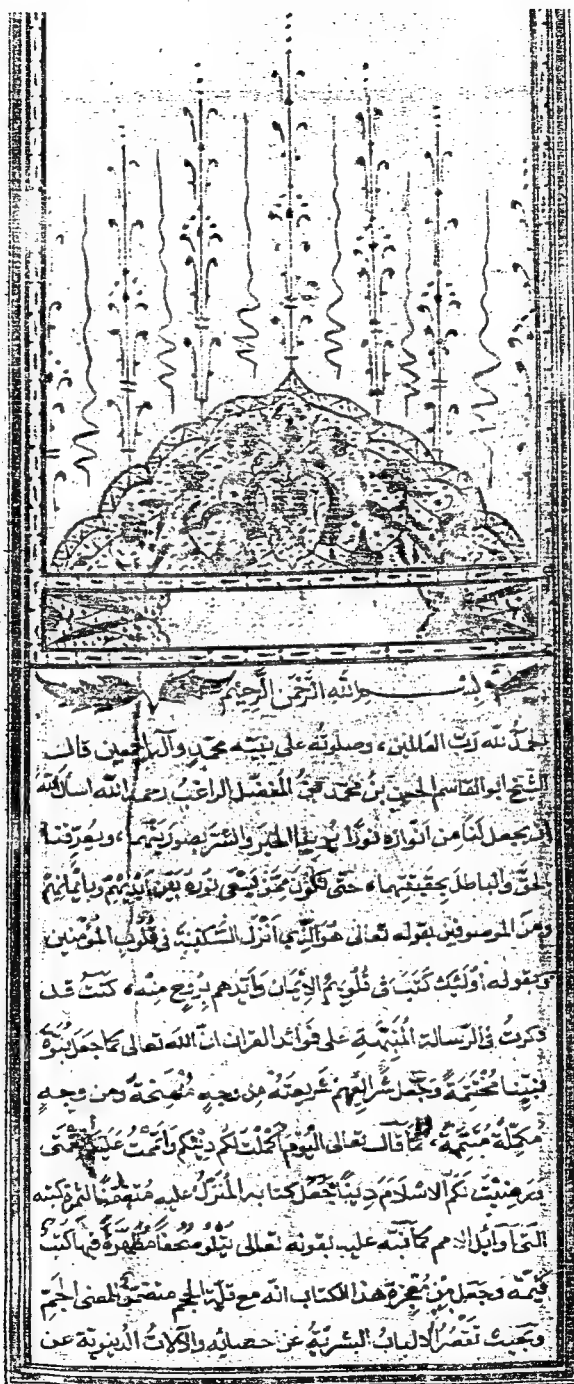 بسم الله الرحمن الرحيم
الحمد لله رب العالمين، وصلوته على نبيه محمد وآله اجمعين قال
الشيخ ابو القاسم الحسين بن محمد بن المفضل الراغب رحمه الله اسأل الله
ان يجعل لنا من انواره نورًا يرينا الخير والشر بصورتيهما، ويعرفنا
الحق والباطل بحقيقتيهما، حتى نكون ممن يسعى نوره بين ايديهم وبايمانهم
ومن الموصوفين بقوله تعالى هو الذي أنزل السكينة في قلوب المؤمنين
وبقوله أولئك كتب في قلوبهم الإيمان وأيدهم بروح منه، كنت قد
ذكرت في الرسالة المنبهة على فوائد القرآن ان الله تعالى كما جعل نبوة
نبينا مختتمة وجعل شرائعهم شريعته من وجه منتسخة ومن وجه
مكملة متممة، كما قال تعالى اليوم أكملت لكم دينكم وأتممت عليكم نعمتى
ورضيت لكم الاسلام دينًا جعل كتابه المنزل عليه متضمنًا لثمرة كتبه
التى اوايل الامم كما نبه عليه بقوله تعالى يتلو صحفًا مطهرة فيها كتب
قيمة وجعل من معجزة هذا الكتاب انه مع قلة الحجم متضمن للمعنى الجم
وبحيث تقصر الالباب البشرية عن احصائه والآلات الدنيوية عن